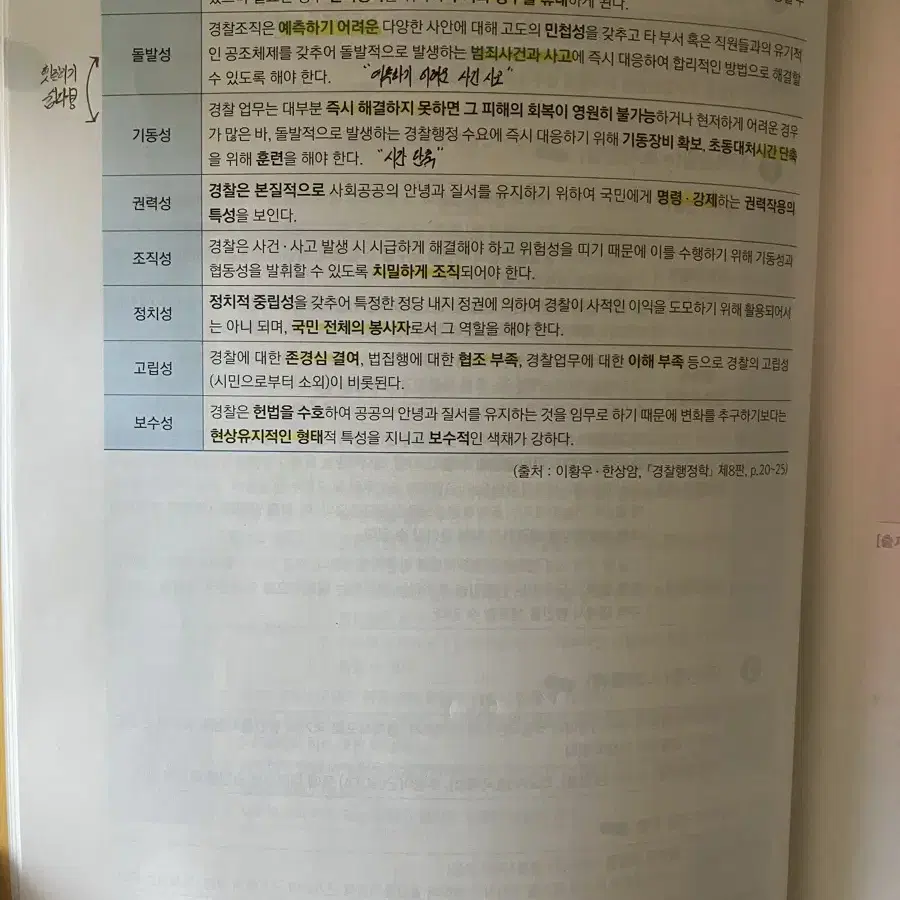 경찰조직은 예측하기 어려운 다양한 사안에 대해 고도의 민첩성을 갖추고 타 부서 혹은 직원들과의 유기적
돌발성
인 공조체제를 갖추어 돌발적으로 발생하는 범죄사건과 사고에 즉시 대응하여 합리적인 방법으로 해결할
수 있도록 해야 한다. "예측하기 어려운 사건 사고"
경찰 업무는 대부분 즉시 해결하지 못하면 그 피해의 회복이 영원히 불가능하거나 현저하게 어려운 경우
기동성
가 많은 바, 돌발적으로 발생하는 경찰행정 수요에 즉시 대응하기 위해 기동장비 확보, 초동대처시간 단축
을 위해 훈련을 해야 한다. "시간 단축"
권력성
경찰은 본질적으로 사회공공의 안녕과 질서를 유지하기 위하여 국민에게 명령·강제하는 권력작용의
특성을 보인다.
조직성
경찰은 사건·사고 발생 시 시급하게 해결해야 하고 위험성을 띠기 때문에 이를 수행하기 위해 기동성과
협동성을 발휘할 수 있도록 치밀하게 조직되어야 한다.
정치성
정치적 중립성을 갖추어 특정한 정당 내지 정권에 의하여 경찰이 사적인 이익을 도모하기 위해 활용되어서
는 아니 되며, 국민 전체의 봉사자로서 그 역할을 해야 한다.
고립성
경찰에 대한 존경심 결여, 법집행에 대한 협조 부족, 경찰업무에 대한 이해 부족 등으로 경찰의 고립성
(시민으로부터 소외)이 비롯된다.
보수성
경찰은 헌법을 수호하여 공공의 안녕과 질서를 유지하는 것을 임무로 하기 때문에 변화를 추구하기보다는
현상유지적인 형태적 특성을 지니고 보수적인 색채가 강하다.
(출처 : 이황우·한상암, 「경찰행정학」 제8판, p.20~25)